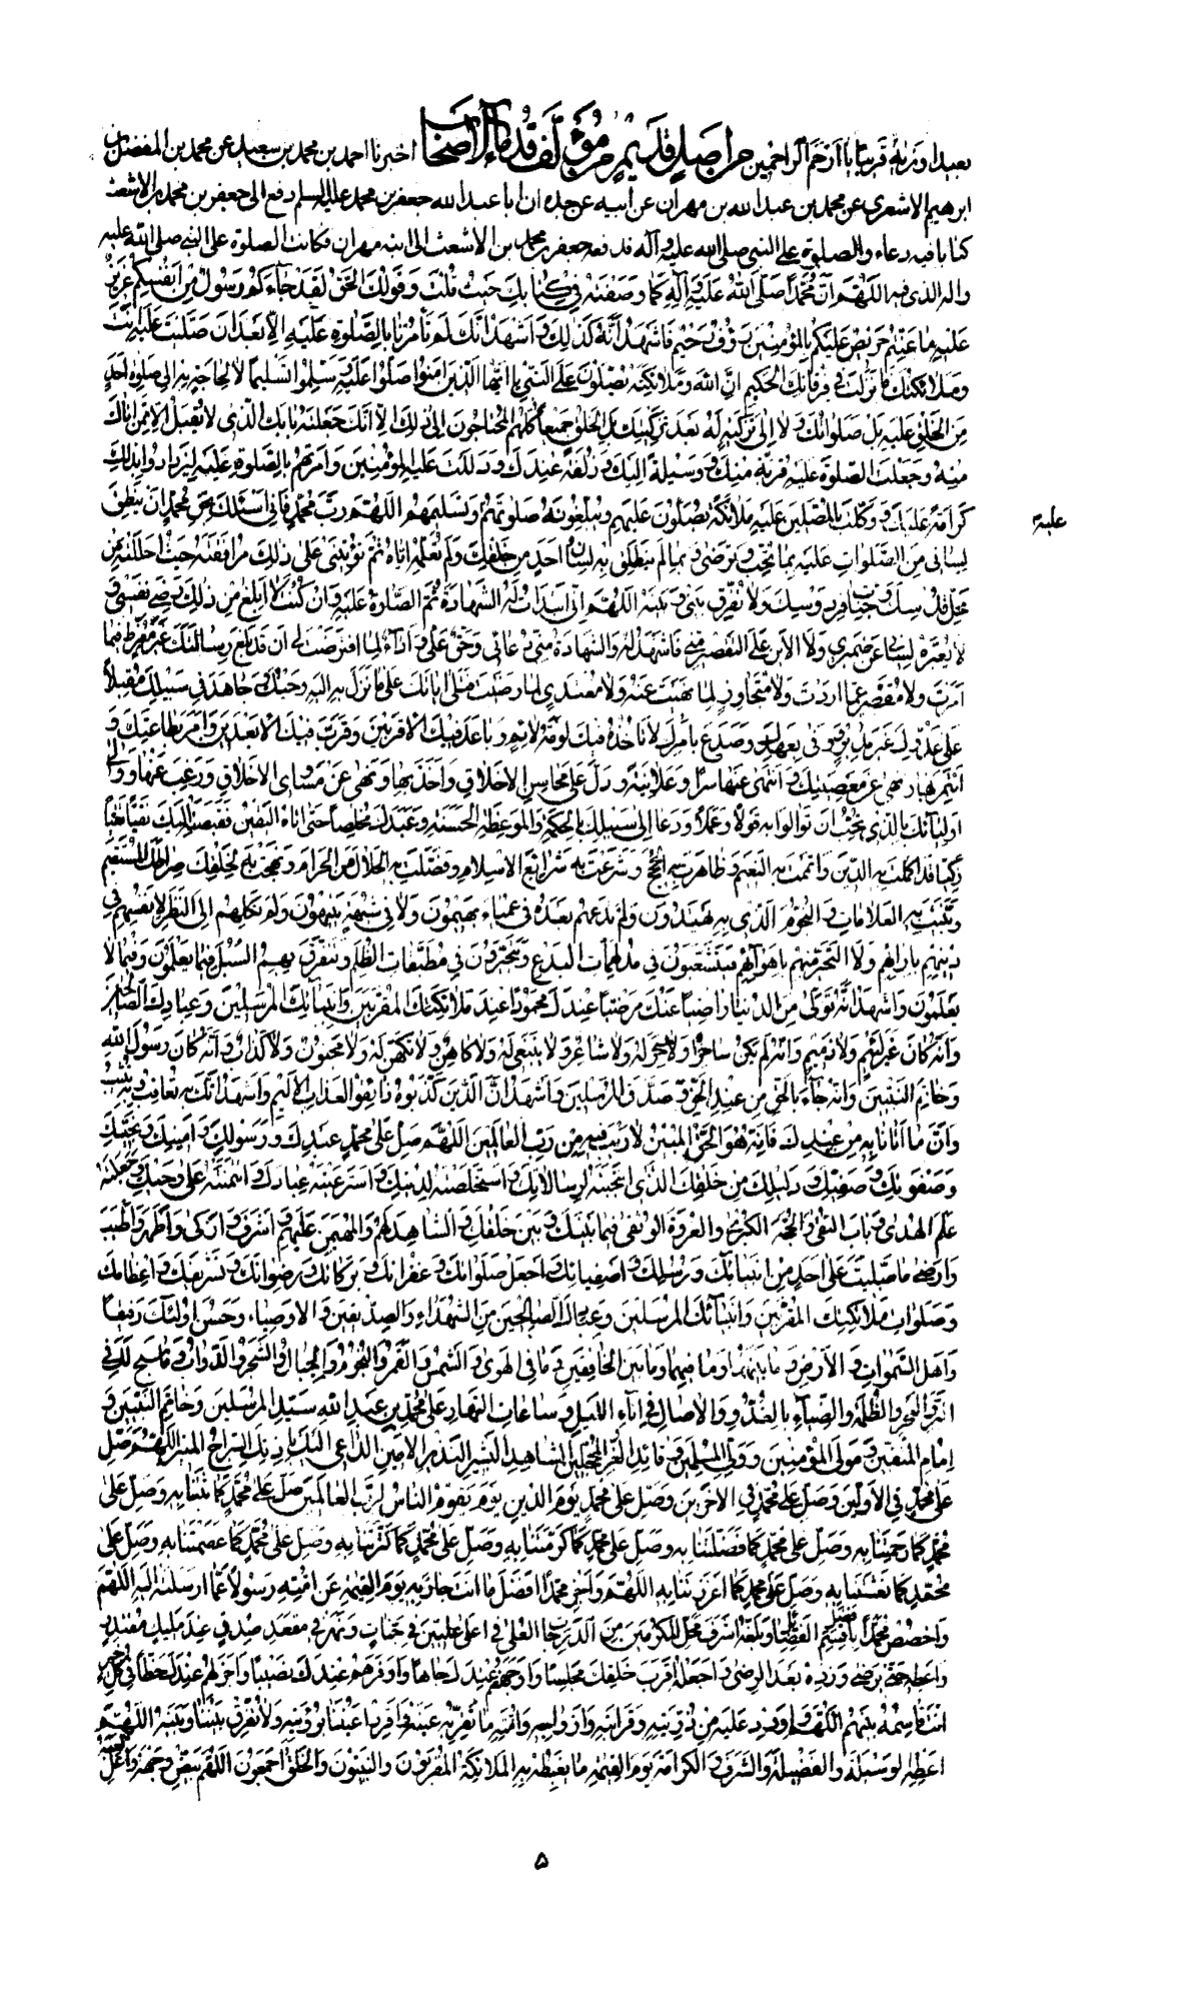 بعيدا ونراه قريبا يا ارحم الراحمين من اصل قديم من مؤلف قدماء الاصحاب اخبرنا احمد بن محمد بن سعيد عن محمد بن المفضل بن
ابرهيم الاشعري عن محمد بن عبد الله بن مهران عن ابيه عن جده ان ابا عبد الله جعفر بن محمد عليه السلم دفع الى جعفر بن محمد بن الاشعث
كتابا فيه دعاء والصلوة على النبي صلى الله عليه وآله قد فعه جعفر بن محمد بن الاشعث الى ابنه مهران فكانت الصلوة على النبي صلى الله عليه
وآله الذي فيه اللهم ان محمدا صلى الله عليه وآله كما وصفته في كتابك حيث قلت وقولك الحق لقد جاءكم رسول من انفسكم عزيز
عليه ما عنتم حريص عليكم بالمؤمنين رؤف رحيم فاشهد انه كذلك واشهد انك لم تأمرنا بالصلوة عليه الا بعد ان صليت عليه انت
وملائكتك فانزلت في فرقانك الحكيم ان الله وملائكته يصلون على النبي يا ايها الذين امنوا صلوا عليه وسلموا تسليما لا لحاجة به الى صلوة احد
من الخلق عليه بعد صلواتك ولا الى تزكية له بعد تزكيتك بل الخلق جميعا كلهم المحتاجون الى ذلك الا انك جعلته بابك الذي لا تقبل الا لمن اتاك
منه وجعلت الصلوة عليه قربة منك ووسيلة اليك وزلفة عندك ودللت عليه المؤمنين وامرتهم بالصلوة عليه ليزدادوا بذلك
كرامة عليك ووكلت بالمصلين عليه ملائكة يصلون عليهم ويبلغونه صلوتهم وتسليمهم اللهم رب محمد فاني اسئلك بحق محمد ان ينطق
عليه
لساني من الصلوات عليه بما تحب وترضى وبما لم ينطلق به لسان احد من خلقك ولم تعلمه اياه ثم تؤتيني على ذلك مرافقته حيث احللته من
محل قدسك وجنات فردوسك ولا تفرق بيني وبينه اللهم اني ابدأ له الشهادة ثم الصلوة عليه وان كنت لا ابلغ من ذلك رضى نفسي و
لا يعبره لساني عن ضميري ولا الام على التقصير مني فاشهد له والشهادة مني دعائي وحق علي واداء لما افترضت لي ان قد بلغ رسالتك غير مفرط فيما
امرت ولا مقصر عما اردت ولا متجاوز لما نهيت عنه ولا معتد لما رضيت فتلى آياتك على ما نزل به اليه وحيك وجاهد في سبيلك مقبلا
على عدوك غير مدبر ووفى بعهدك وصدع بامرك لا تاخذه فيك لومة لائم وباعد فيك الاقربين وقرب فيك الابعدين وامر بطاعتك و
ائتمر بها ونهى عن معصيتك وانتهى عنها سرا وعلانية ودل على محاسن الاخلاق واخذ بها ونهى عن مساوي الاخلاق ورغب عنها ووالى
اوليائك بالذي تحب ان توالوا به قولا وعملا ودعا الى سبيلك بالحكمة والموعظة الحسنة وعبدك مخلصا حتى اتاه اليقين فقبضته اليك نقيا تقيا
زكيا قد اكملت به الدين واتممت به النعيم وظاهرت به الحجج وشرعت به شرائع الاسلام وفصلت به الحلال من الحرام ونهجت به لخلقك صراطك المستقيم
وبينت به العلامات والنجوم الذي به يهتدون ولم تدعهم بعده في عمياء يهيمون ولا في شبهة يتيهون ولم تكلهم الى النظر لانفسهم في
دينهم بآرائهم ولا التخير منهم باهوائهم فيتشعبون في مدلهمات البدع ويتحيرون في مطبقات الظلم وتتفرق بهم السبل فيما يعلمون وفيما لا
يعلمون واشهد انه تولى من الدنيا راضيا عنك مرضيا عندك محمودا عند ملائكتك المقربين وانبيائك المرسلين وعبادك الصالحين
وانه كان غير لئيم ولا ذميم وانه لم يكن ساحرا ولا سحر له ولا شاعر ولا ينبغي له ولا كاهن ولا تكهن له ولا مجنون ولا كذاب وانه كان رسول الله
وخاتم النبيين وانه جاء بالحق من عند الحق وصدق المرسلين واشهد ان الذين كذبوه ذائقوا العذاب الاليم واشهد انك به تعاقب وبه تثيب
وان ما اتانا به من عندك فانه هو الحق المبين لا ريب فيه من رب العالمين اللهم صل على محمد عبدك ورسولك وامينك ونجيك
وصفوتك وصفيك ودليلك من خلقك الذي انتجبته لرسالاتك واستخلصته لدينك واسترعيته عبادك وائتمنته على وحيك وجعلته
علم الهدى وباب التقى والحجة الكبرى والعروة الوثقى فيما بينك وبين خلقك والشاهد لهم والمهيمن عليهم اشرف وازكى واطهر واطيب
وارضى ما صليت على احد من انبيائك ورسلك واصفيائك واجعل صلواتك وغفرانك وبركاتك ورضوانك وتشريفك واعظامك
وصلوات ملائكتك المقربين وانبيائك المرسلين وعبادك الصالحين من الشهداء والصديقين والاوصياء وحسن اولئك رفيقا
واهل السموات والارض وما بينهما وما فيهما وما بين الخافقين وما في الهوى والشمس والقمر والنجوم والجبال والشجر والدواب وما سبح لك في
البر والبحر والظلمة والضياء بالغدو والاصال في اناء الليل وساعات النهار على محمد بن عبد الله سيد المرسلين وخاتم النبيين و
امام المتقين ومولى المؤمنين وولي المسلمين وقائد الغر المحجلين الشاهد البشير النذير الامين الداعي اليك باذنك السراج المنير اللهم صل
على محمد في الاولين وصل على محمد في الاخرين وصل على محمد يوم الدين يوم يقوم الناس لرب العالمين صل على محمد كما هديتنا به وصل على
محمد كما رحمتنا به وصل على محمد كما فضلتنا به وصل على محمد كما كرمتنا به وصل على محمد كما كثرتنا به وصل على محمد كما عصمتنا به وصل على
محمد كما نعشتنا به وصل على محمد كما اعززتنا به اللهم واجز محمدا افضل ما انت جاز به يوم القيمة عن امته رسولا عما ارسلته اليه اللهم
واخصص محمدا بافضل قسم الفضائل وبلغه اشرف محل المكرمين من الدرجات العلى في اعلى عليين في جنات ونهر في مقعد صدق عند مليك مقتدر
واعطه حتى يرضى وزده بعد الرضى واجعله اقرب خلقك مجلسا واوجههم عندك جاها واوفرهم عندك نصيبا واجزلهم عندك حظا في كل خير
انت قاسمه بينهم اللهم اورد عليه من ذريته وقرابته وازواجه وامته ما تقر به عينه واقرر عيننا برؤيته ولا تفرق بيننا وبينه اللهم
اعطه الوسيلة والفضيلة والشرف والكرامة يوم القيمة ما يغبطه به الملائكة المقربون والنبيون والخلق اجمعون اللهم بيض وجهه واعل كعبه
۵